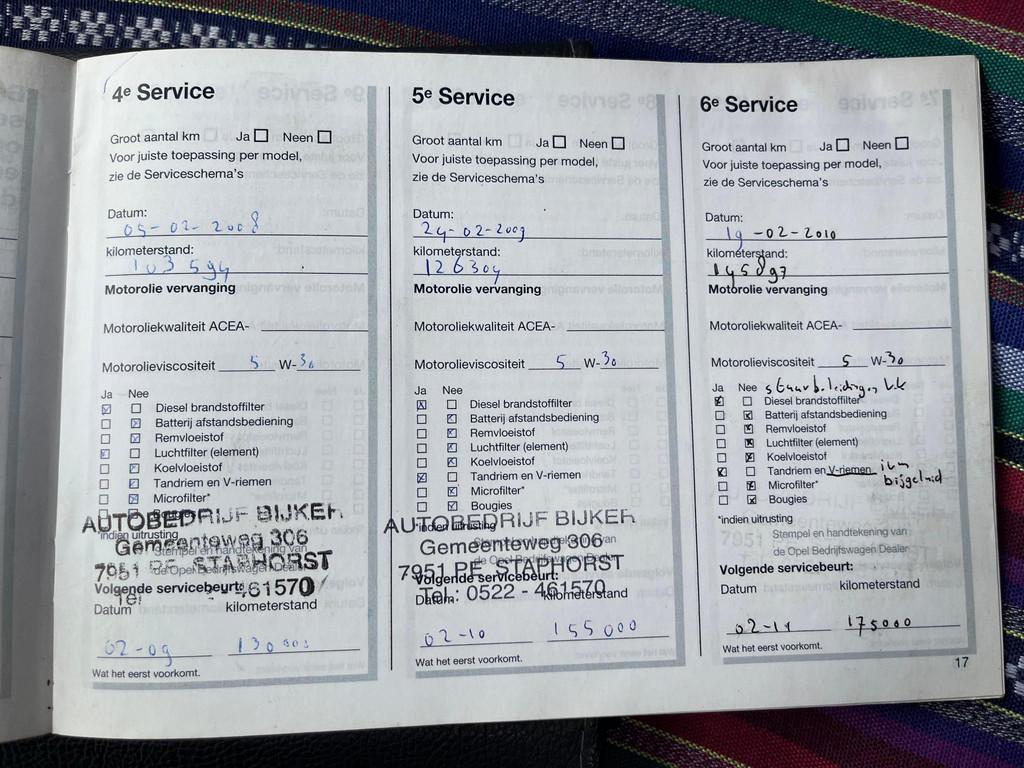 4e Service
Groot aantal km Ja Neen
Voor juiste toepassing per model,
zie de Serviceschema's
Datum:
05-02-2008
kilometerstand:
103594
Motorolie vervanging
Motoroliekwaliteit ACEA-
Motorolieviscositeit 5 W-30
Ja Nee
Diesel brandstoffilter
Batterij afstandsbediening
Remvloeistof
Luchtfilter (element)
Koelvloeistof
Tandriem en V-riemen
Microfilter*
Bougies
AUTOBEDRIJF BIJKER
*indien uitrusting
Gemeenteweg 306
Stempel en handtekening van
7951 PE STAPHORST
de Opel Bedrijfswagen Dealer
Volgende servicebeurt:
Tel - 461570
Datum kilometerstand
02-09 130000
Wat het eerst voorkomt.
5e Service
Groot aantal km Ja Neen
Voor juiste toepassing per model,
zie de Serviceschema's
Datum:
24-02-2009
kilometerstand:
126304
Motorolie vervanging
Motoroliekwaliteit ACEA-
Motorolieviscositeit 5 W-30
Ja Nee
Diesel brandstoffilter
Batterij afstandsbediening
Remvloeistof
Luchtfilter (element)
Koelvloeistof
Tandriem en V-riemen
Microfilter*
Bougies
AUTOBEDRIJF BIJKER
*indien uitrusting
Gemeenteweg 306
Stempel en handtekening van
de Opel Bedrijfswagen Dealer
7951 PE STAPHORST
Volgende servicebeurt:
Tel.: 0522 - 461570
Datum kilometerstand
02-10 155000
Wat het eerst voorkomt.
6e Service
Groot aantal km Ja Neen
Voor juiste toepassing per model,
zie de Serviceschema's
Datum:
19-02-2010
kilometerstand:
145897
Motorolie vervanging
Motoroliekwaliteit ACEA-
Motorolieviscositeit 5 W-30
Ja Nee
Diesel brandstoffilter
Batterij afstandsbediening
Remvloeistof
Luchtfilter (element)
Koelvloeistof
Tandriem en V-riemen
Microfilter*
Bougies
*indien uitrusting
Stempel en handtekening van
de Opel Bedrijfswagen Dealer
Volgende servicebeurt:
Datum kilometerstand
02-11 175000
Wat het eerst voorkomt.
17